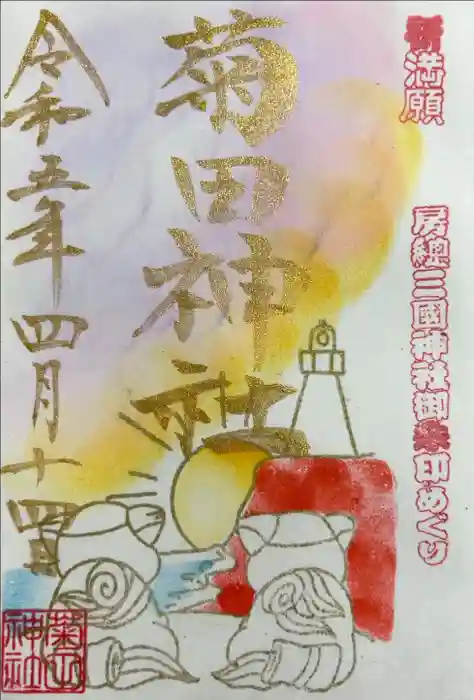 満願
房總三國神社御朱印めぐり
菊田神社
令和五年四月十四日
菊田
神社